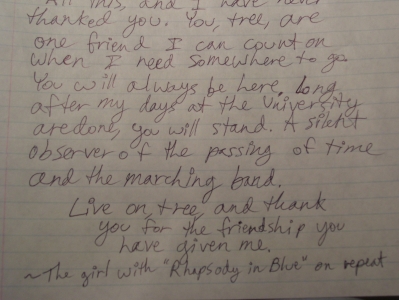 All this, and I have never
thanked you. You, tree, are
one friend I can count on
when I need somewhere to go.
You will always be here. Long
after my days at the University
are done, you will stand. A silent
observer of the passing of time
and the marching band.
Live on, tree, and thank
you for the friendship you
have given me.
~The girl with "Rhapsody in Blue" on repeat